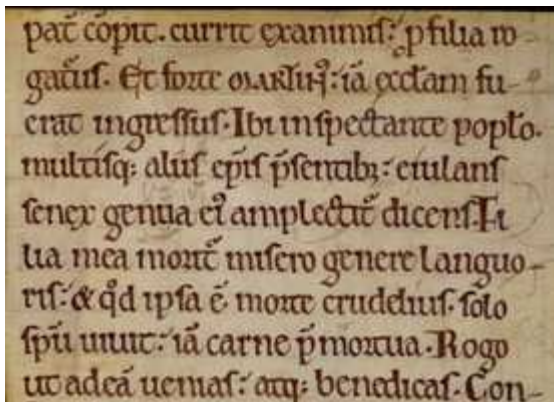 pat̄ cōpit. currit exanimis: ꝓ filia ro-
gat̄us. Et forte MARTINꝰ: iā ecct̄am fu-
erat ingressus. Ibi inspectante popt̄o.
multisq; aliis ep̄is p̄sentib;: eiulans
senex genua eiꝰ amplectit̄ dicens. Fi
lia mea morit̄ misero genere languo-
ris: & qd̄ ipsa ē morte crudelius. solo
sp̄u uiuit: iā carne p̄mortua. Rogo
ut adeā uenias: atq; benedicas. Con-